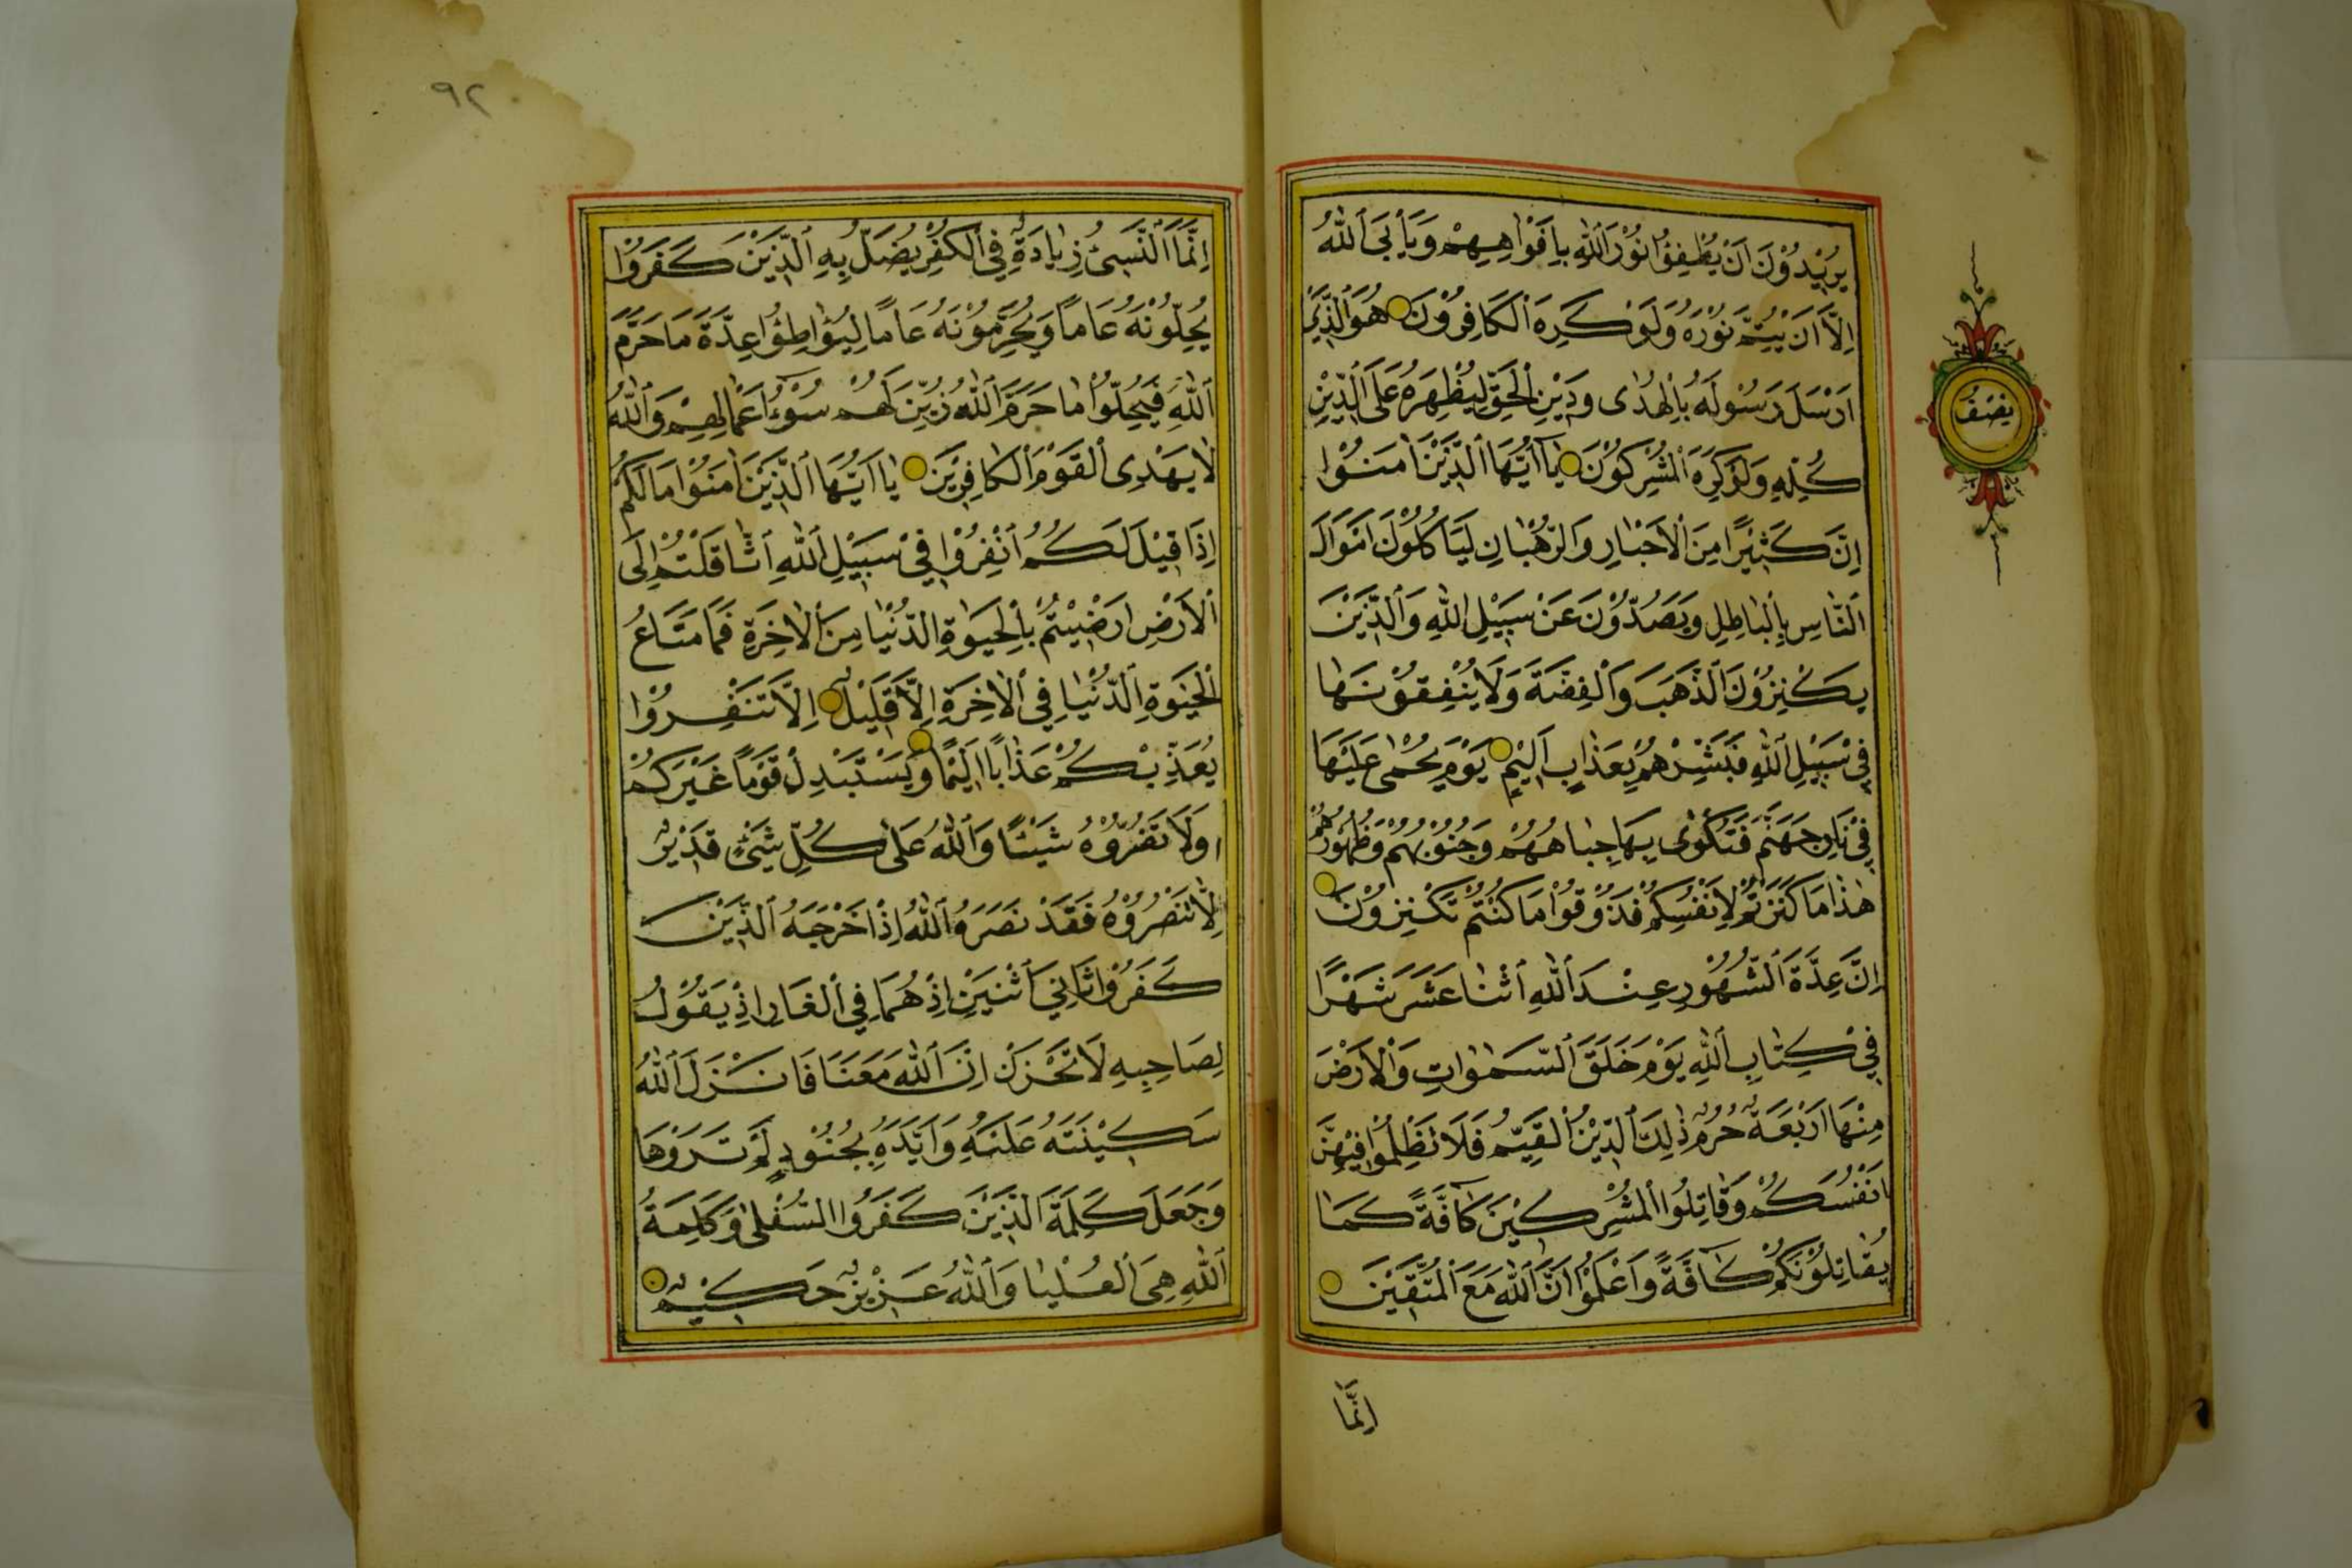 يُرِيْدُوْنَ اَنْ يُطْفِؤُا نُوْرَ اللّٰهِ بِاَفْوَاهِهِمْ وَيَأْبَى اللّٰهُ
اِلَّا اَنْ يُتِمَّ نُوْرَهُ وَلَوْ كَرِهَ الْكَافِرُوْنَ هُوَ الَّذِيْ
اَرْسَلَ رَسُوْلَهُ بِالْهُدٰى وَدِيْنِ الْحَقِّ لِيُظْهِرَهُ عَلَى الدِّيْنِ
كُلِّهِ وَلَوْ كَرِهَ الْمُشْرِكُوْنَ يٰٓا اَيُّهَا الَّذِيْنَ اٰمَنُوْا
اِنَّ كَثِيْرًا مِنَ الْاَحْبَارِ وَالرُّهْبَانِ لَيَأْكُلُوْنَ اَمْوَالَ
النَّاسِ بِالْبَاطِلِ وَيَصُدُّوْنَ عَنْ سَبِيْلِ اللّٰهِ وَالَّذِيْنَ
يَكْنِزُوْنَ الذَّهَبَ وَالْفِضَّةَ وَلَا يُنْفِقُوْنَهَا
فِيْ سَبِيْلِ اللّٰهِ فَبَشِّرْهُمْ بِعَذَابٍ اَلِيْمٍ يَوْمَ يُحْمٰى عَلَيْهَا
فِيْ نَارِ جَهَنَّمَ فَتُكْوٰى بِهَا جِبَاهُهُمْ وَجُنُوْبُهُمْ وَظُهُوْرُهُمْ
هٰذَا مَا كَنَزْتُمْ لِاَنْفُسِكُمْ فَذُوْقُوْا مَا كُنْتُمْ تَكْنِزُوْنَ
اِنَّ عِدَّةَ الشُّهُوْرِ عِنْدَ اللّٰهِ اثْنَا عَشَرَ شَهْرًا
فِيْ كِتَابِ اللّٰهِ يَوْمَ خَلَقَ السَّمٰوَاتِ وَالْاَرْضَ
مِنْهَا اَرْبَعَةٌ حُرُمٌ ذٰلِكَ الدِّيْنُ الْقَيِّمُ فَلَا تَظْلِمُوْا فِيْهِنَّ
اَنْفُسَكُمْ وَقَاتِلُوا الْمُشْرِكِيْنَ كَآفَّةً كَمَا
يُقَاتِلُوْنَكُمْ كَآفَّةً وَاعْلَمُوْا اَنَّ اللّٰهَ مَعَ الْمُتَّقِيْنَ
اِنَّمَا
نِصْفُ
٩٢
اِنَّمَا النَّسِىْٓءُ زِيَادَةٌ فِي الْكُفْرِ يُضَلُّ بِهِ الَّذِيْنَ كَفَرُوْا
يُحِلُّوْنَهُ عَامًا وَيُحَرِّمُوْنَهُ عَامًا لِيُوَاطِؤُا عِدَّةَ مَا حَرَّمَ
اللّٰهُ فَيُحِلُّوْا مَا حَرَّمَ اللّٰهُ زُيِّنَ لَهُمْ سُوْٓءُ اَعْمَالِهِمْ وَاللّٰهُ
لَا يَهْدِى الْقَوْمَ الْكَافِرِيْنَ يَا اَيُّهَا الَّذِيْنَ اٰمَنُوْا مَا لَكُمْ
اِذَا قِيْلَ لَكُمُ انْفِرُوْا فِيْ سَبِيْلِ اللّٰهِ اثَّاقَلْتُمْ اِلَى
الْاَرْضِ اَرَضِيْتُمْ بِالْحَيٰوةِ الدُّنْيَا مِنَ الْاٰخِرَةِ فَمَا مَتَاعُ
الْحَيٰوةِ الدُّنْيَا فِي الْاٰخِرَةِ اِلَّا قَلِيْلٌ اِلَّا تَنْفِرُوْا
يُعَذِّبْكُمْ عَذَابًا اَلِيْمًا وَيَسْتَبْدِلْ قَوْمًا غَيْرَكُمْ
وَلَا تَضُرُّوْهُ شَيْئًا وَاللّٰهُ عَلٰى كُلِّ شَيْءٍ قَدِيْرٌ
اِلَّا تَنْصُرُوْهُ فَقَدْ نَصَرَهُ اللّٰهُ اِذْ اَخْرَجَهُ الَّذِيْنَ
كَفَرُوْا ثَانِيَ اثْنَيْنِ اِذْ هُمَا فِي الْغَارِ اِذْ يَقُوْلُ
لِصَاحِبِهِ لَا تَحْزَنْ اِنَّ اللّٰهَ مَعَنَا فَاَنْزَلَ اللّٰهُ
سَكِيْنَتَهُ عَلَيْهِ وَاَيَّدَهُ بِجُنُوْدٍ لَمْ تَرَوْهَا
وَجَعَلَ كَلِمَةَ الَّذِيْنَ كَفَرُوا السُّفْلٰى وَكَلِمَةُ
اللّٰهِ هِيَ الْعُلْيَا وَاللّٰهُ عَزِيْزٌ حَكِيْمٌ